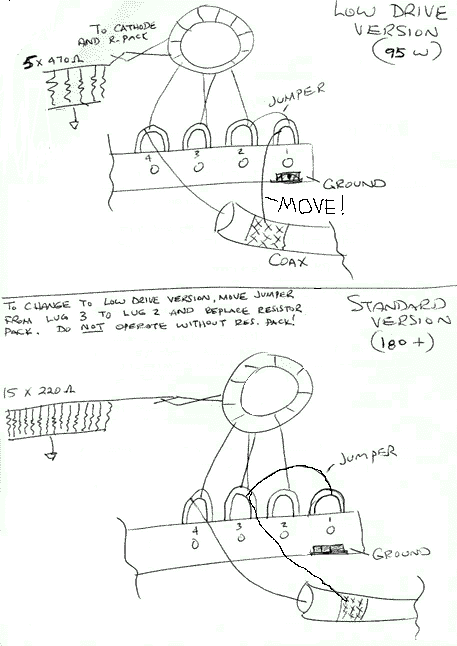 TO CATHODE
AND R-PACK
LOW DRIVE
VERSION
(95 W)
5 x 470Ω
JUMPER
4 3 2 1
GROUND
MOVE!
COAX
TO CHANGE TO LOW DRIVE VERSION, MOVE JUMPER
FROM LUG 3 TO LUG 2 AND REPLACE RESISTOR
PACK. DO NOT OPERATE WITHOUT RES. PACK!
STANDARD
VERSION
(180+)
15 x 220Ω
JUMPER
4 3 2 1
GROUND